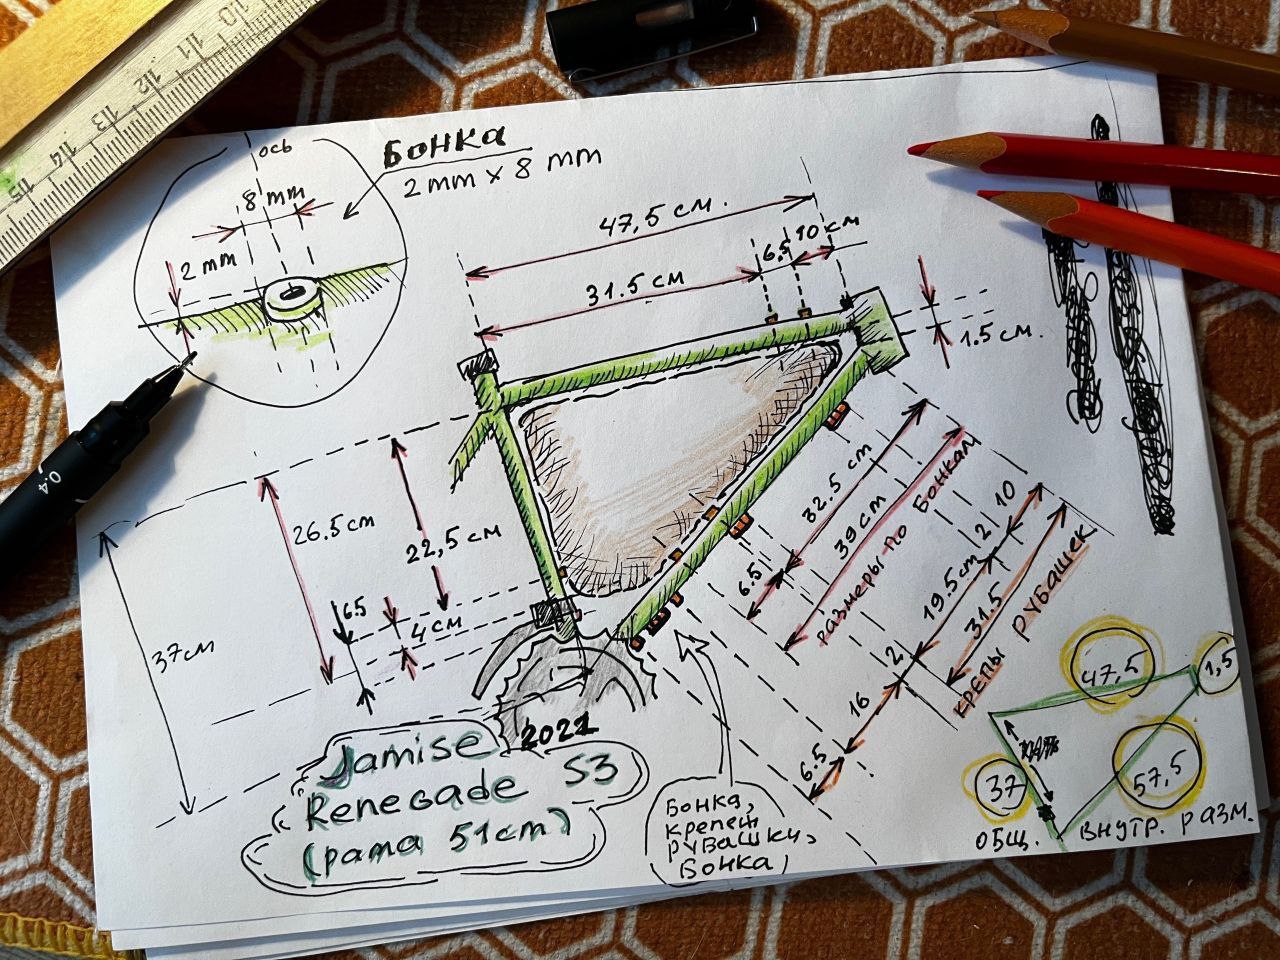 10
11
12
13
14
15
0.4
ось
БОНКА
2 mm x 8 mm
8 mm
2 mm
47,5 см.
6,5
10 см
31.5 см
1.5 см.
26.5 см
22,5 см
6.5
4 см
37 см
32.5 cm
39 cm
6.5
размеры по бонкам
10
2
19.5 cm
31.5
2
16
6.5
крепы рубашек
2021
Jamise
Renegade S3
(рама 51 cm)
Бонка,
крепеж
рубашки,
Бонка
47,5
1,5
37
57,5
общ.
внутр. разм.